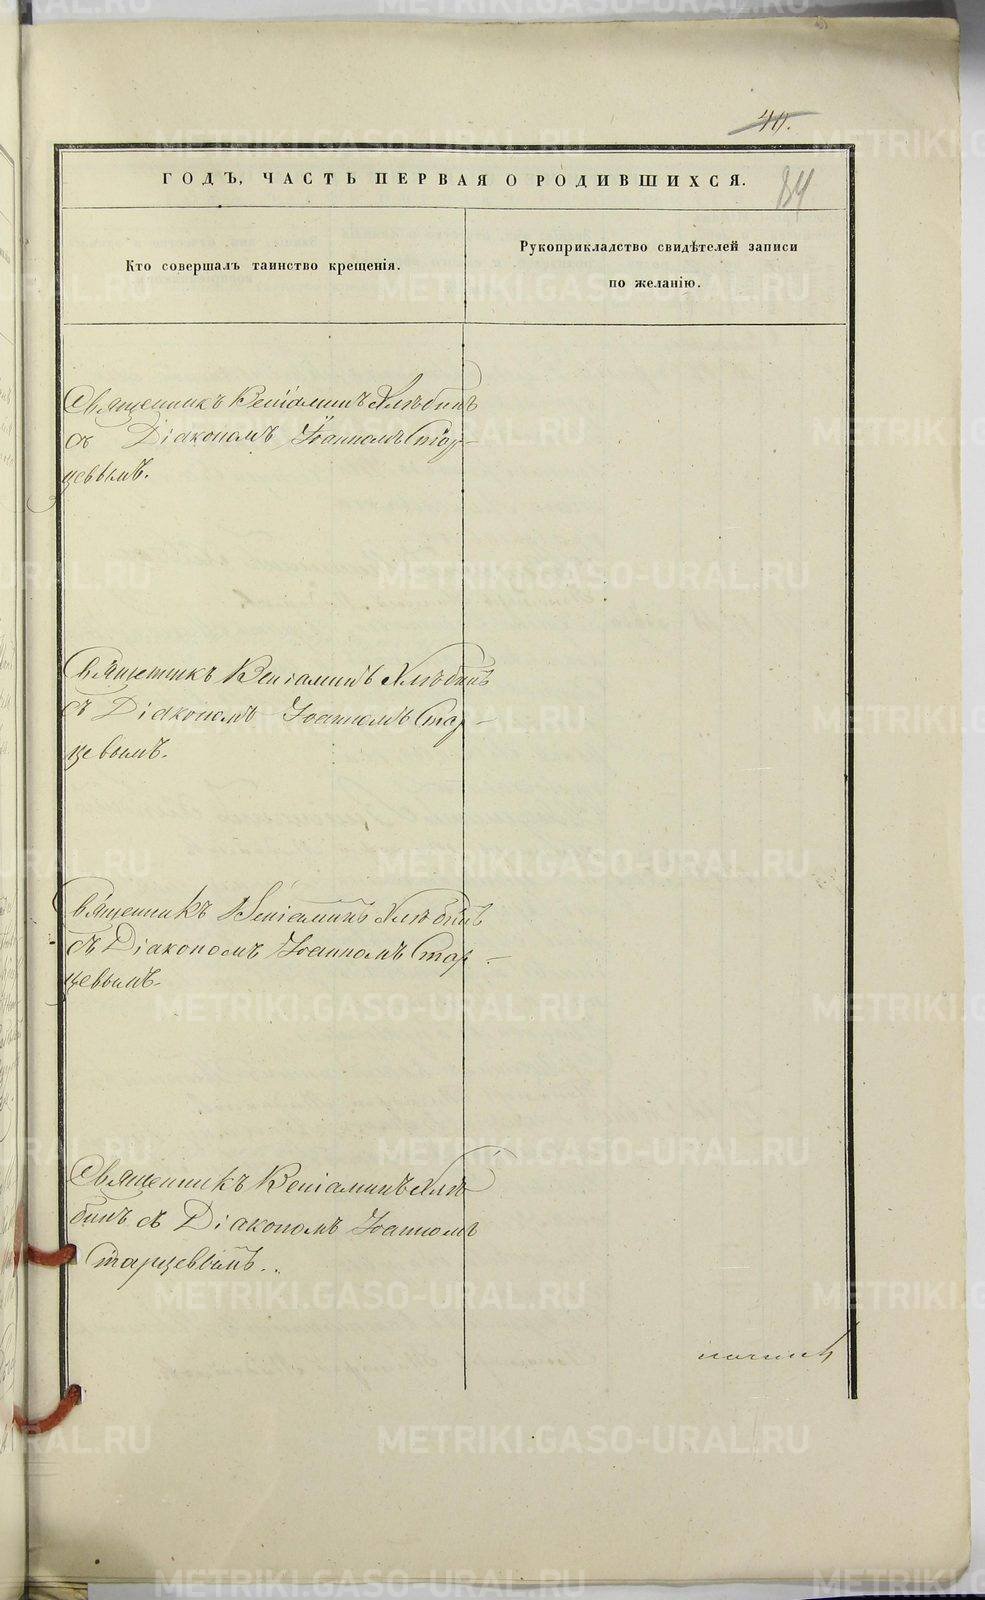 40.
ГОДЪ, ЧАСТЬ ПЕРВАЯ О РОДИВШИХСЯ.
84
Кто совершалъ таинство крещенія.
Рукоприкладство свидѣтелей записи
по желанію.
Священникъ Веніаминъ Хлѣбинъ
съ Діакономъ Іоанномъ Стар-
цевымъ.
Священникъ Веніаминъ Хлѣбинъ
съ Діакономъ Іоанномъ Стар-
цевымъ.
Священникъ Веніаминъ Хлѣбинъ
съ Діакономъ Іоанномъ Стар-
цевымъ.
Священникъ Веніаминъ Хлѣ-
бинъ съ Діакономъ Іоанномъ
Старцевымъ.
METRIKI.GASO-URAL.RU